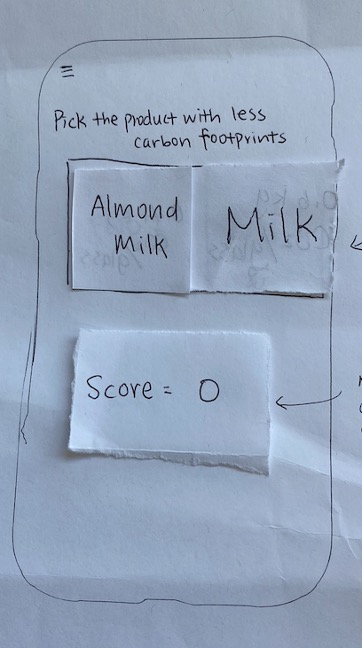 Pick the product with less
carbon footprints
Almond
Milk
Milk
Score = 0